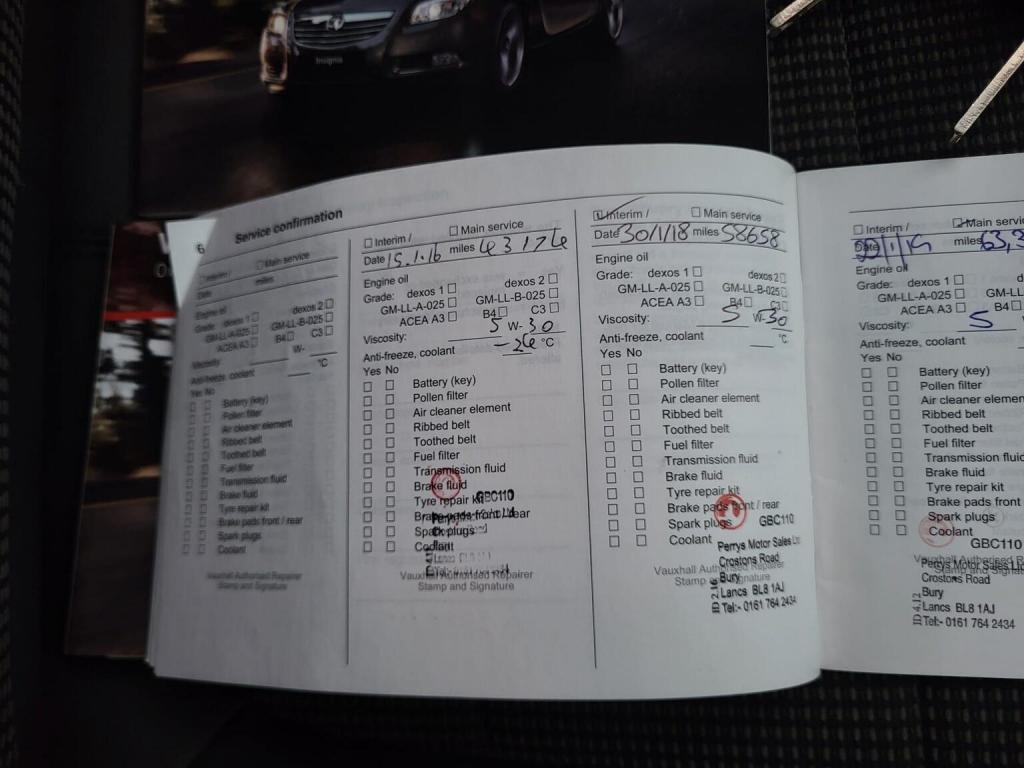 Insignia
6 Service confirmation
Interim / Main service
Date miles
Engine oil
Grade: dexos 1 dexos 2
GM-LL-A-025 GM-LL-B-025
ACEA A3 B4 C3
Viscosity W-
Anti-freeze, coolant °C
Yes No
Battery (key)
Pollen filter
Air cleaner element
Ribbed belt
Toothed belt
Fuel filter
Transmission fluid
Brake fluid
Tyre repair kit
Brake pads front / rear
Spark plugs
Coolant
Vauxhall Authorised Repairer
Stamp and Signature
Interim / Main service
Date 15.1.16 miles 43174
Engine oil
Grade: dexos 1 dexos 2
GM-LL-A-025 GM-LL-B-025
ACEA A3 B4 C3
Viscosity: 5 W-30
Anti-freeze, coolant -26 °C
Yes No
Battery (key)
Pollen filter
Air cleaner element
Ribbed belt
Toothed belt
Fuel filter
Transmission fluid
Brake fluid
Tyre repair kit GBC110
Brake pads front / rear
Spark plugs
Coolant
Vauxhall Authorised Repairer
Stamp and Signature
Interim / Main service
Date 30/1/18 miles 58658
Engine oil
Grade: dexos 1 dexos 2
GM-LL-A-025 GM-LL-B-025
ACEA A3 B4 C3
Viscosity: 5 W-30
Anti-freeze, coolant °C
Yes No
Battery (key)
Pollen filter
Air cleaner element
Ribbed belt
Toothed belt
Fuel filter
Transmission fluid
Brake fluid
Tyre repair kit
Brake pads front / rear
Spark plugs GBC110
Coolant
Perrys Motor Sales Ltd
Vauxhall Authorised Repairer
Crostons Road
Stamp and Signature
Bury
Lancs BL8 1AJ
Tel:- 0161 764 2434
Interim / Main service
Date /1/19 miles 63,3
Engine oil
Grade: dexos 1
GM-LL-A-025 GM-LL
ACEA A3
Viscosity: 5
Anti-freeze, coolant
Yes No
Battery (key)
Pollen filter
Air cleaner element
Ribbed belt
Toothed belt
Fuel filter
Transmission fluid
Brake fluid
Tyre repair kit
Brake pads front
Spark plugs
Coolant
GBC110
Vauxhall Authorised R
Perrys Motor Sales Ltd
Stamp and Signature
Crostons Road
Bury
Lancs BL8 1AJ
Tel:- 0161 764 2434
ID 4.12